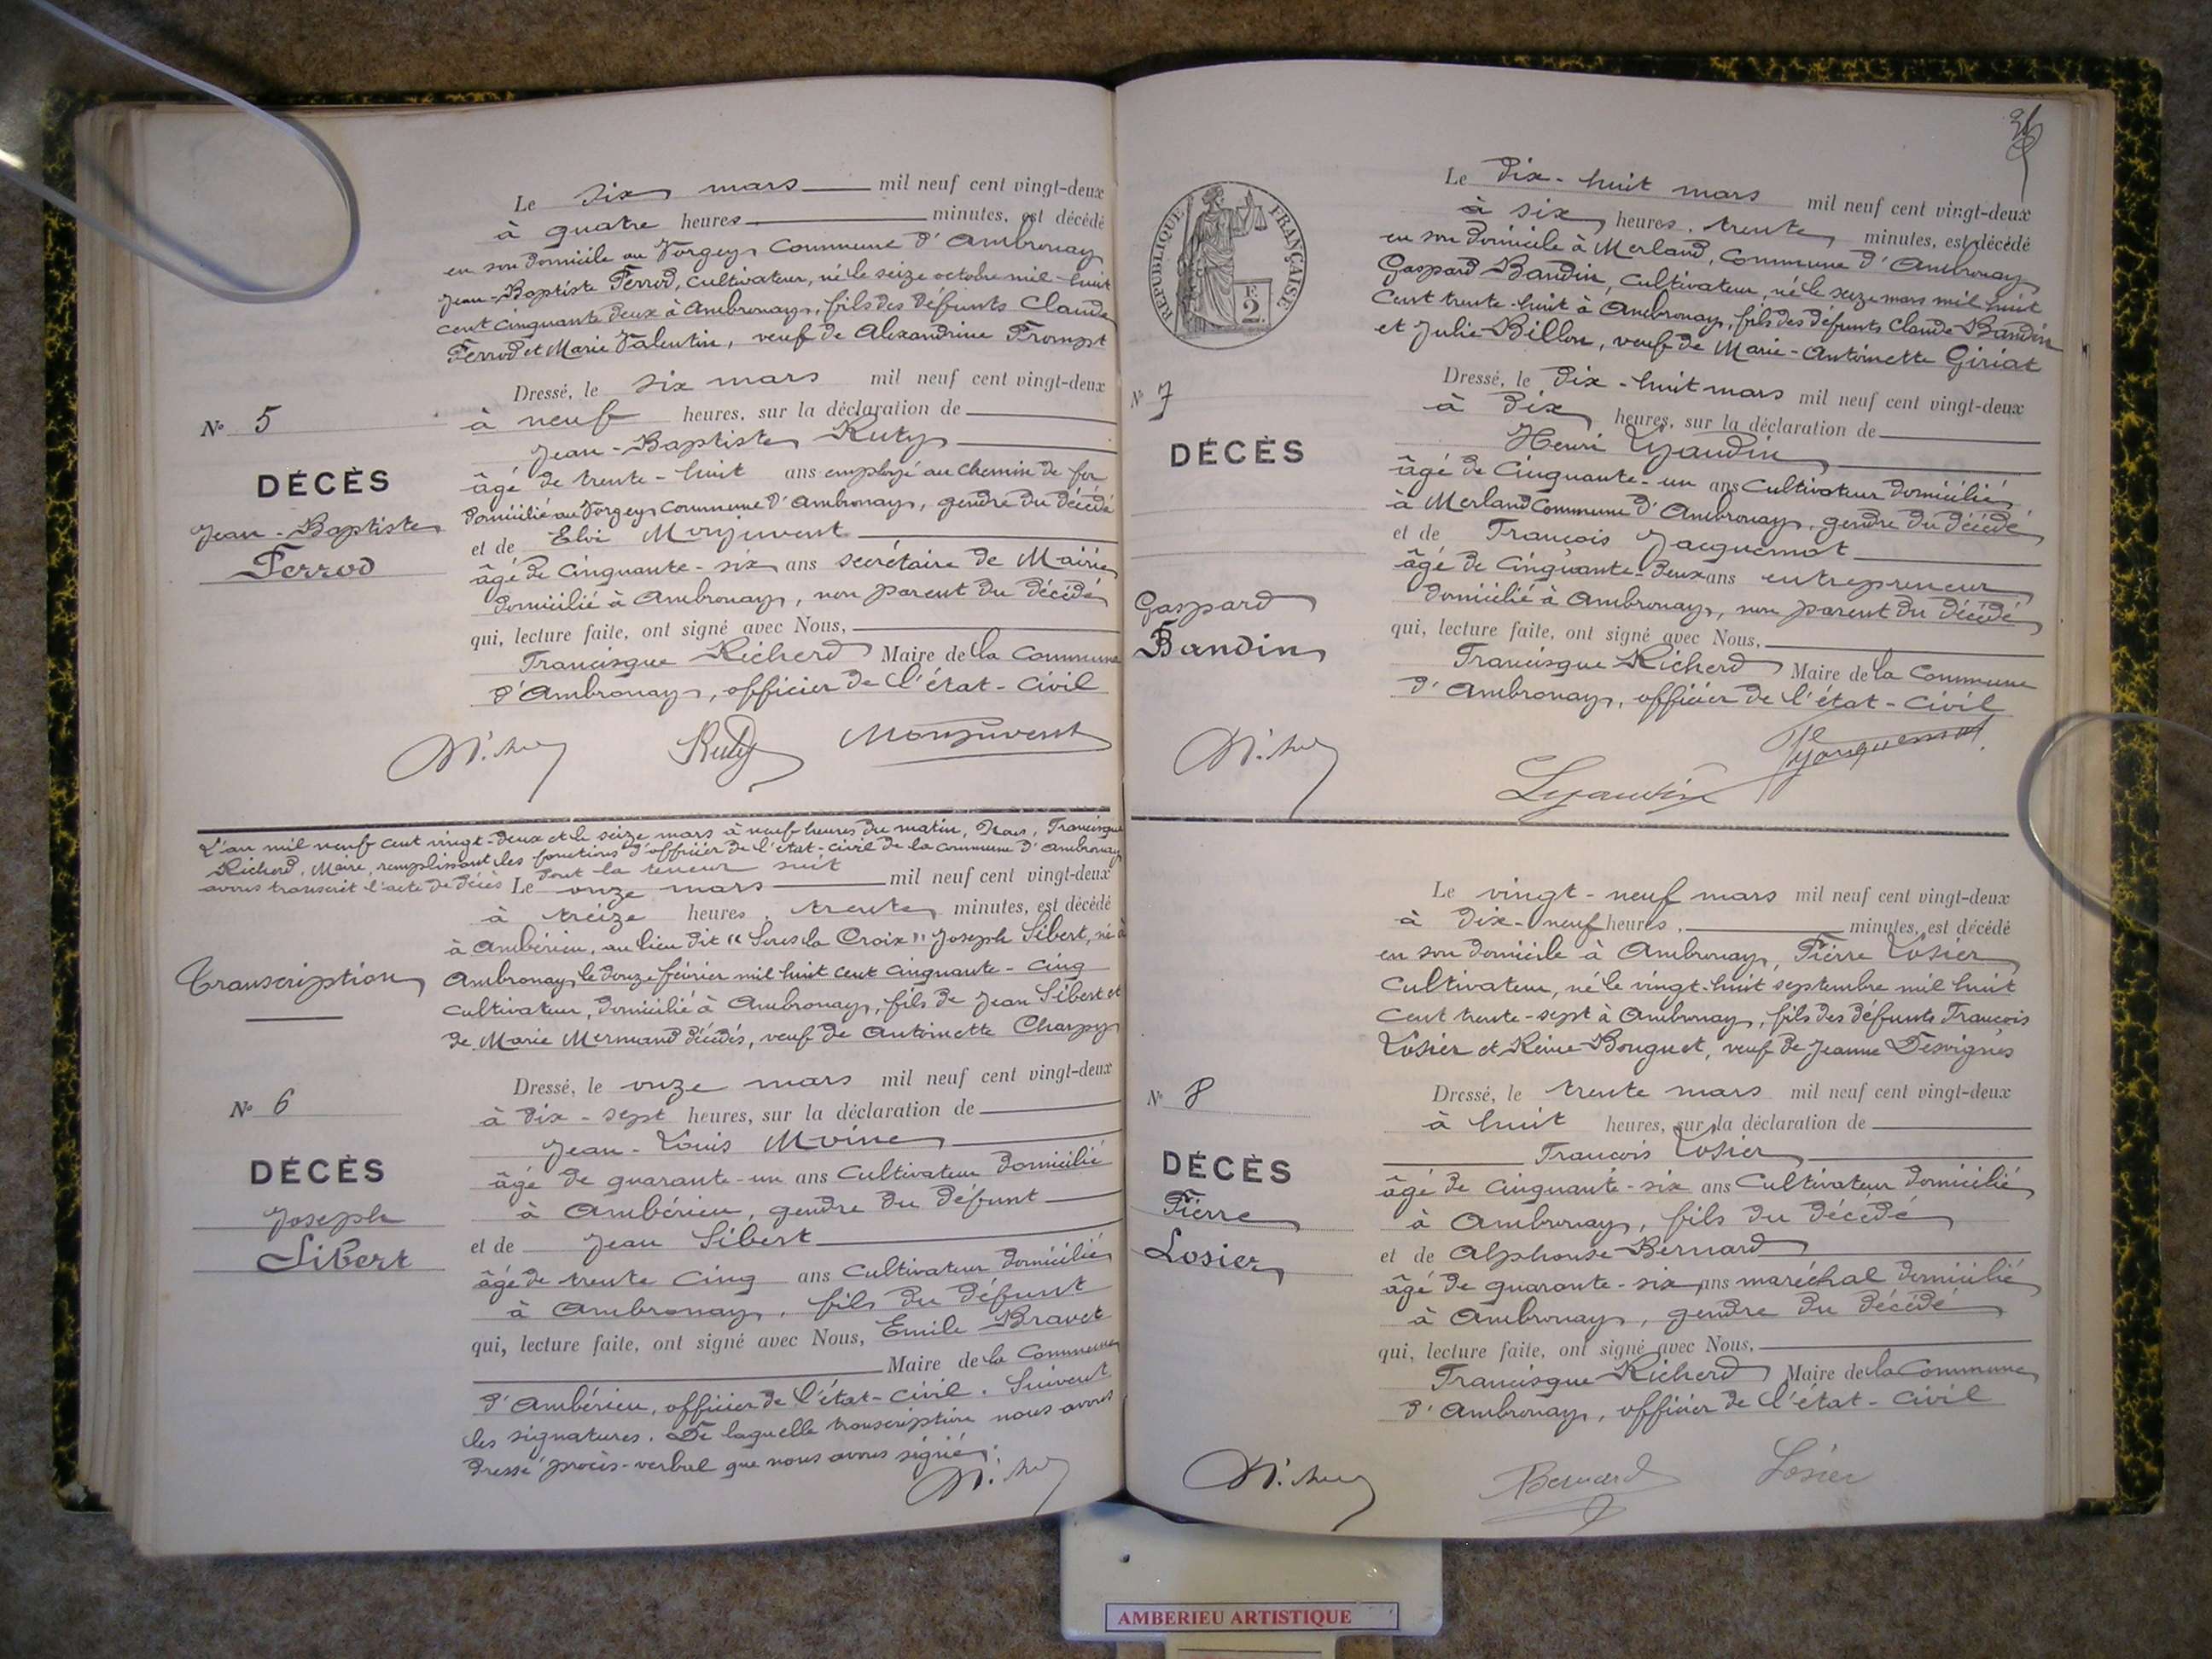 Le six mars mil neuf cent vingt-deux
à quatre heures minutes, est décédé
en son domicile au Vorgey commune d'Ambronay
Jean-Baptiste Ferrod, cultivateur, né le seize octobre mil-huit
cent cinquante deux à Ambronay, fils des défunts Claude
Ferrod et Marie Valentin, veuf de Alexandrine Prompt
Dressé, le six mars mil neuf cent vingt-deux
à neuf heures, sur la déclaration de
Jean-Baptiste Ruty
âgé de trente-huit ans employé au chemin de fer
domicilié au Vorgey commune d'Ambronay, gendre du décédé
et de Eloi Monjuvent
âgé de cinquante-six ans secrétaire de Mairie
domicilié à Ambronay, non parent du décédé
qui, lecture faite, ont signé avec Nous,
Francisque Richerd Maire de la commune
d'Ambronay, officier de l'état-civil
Ruty Monjuvent
N° 5
DÉCÈS
Jean-Baptiste
Ferrod
L'an mil neuf cent vingt-deux et le seize mars à neuf heures du matin, Nous, Francisque
Richerd, Maire, remplissant les fonctions d'officier de l'état-civil de la commune d'Ambronay
avons transcrit l'acte de décès dont la teneur suit
Le onze mars mil neuf cent vingt-deux
à treize heures, trente minutes, est décédé
à Ambérieu, au lieu dit "Sous la Croix" Joseph Sibert, né à
Ambronay le douze février mil huit cent cinquante-cinq
cultivateur, domicilié à Ambronay, fils de Jean Sibert et
de Marie Mermand décédés, veuf de Antoinette Charpy
Dressé, le onze mars mil neuf cent vingt-deux
à dix-sept heures, sur la déclaration de
Jean-Louis Moine
âgé de quarante-un ans cultivateur domicilié
à Ambérieu, gendre du défunt
et de Jean Sibert
âgé de trente cinq ans cultivateur domicilié
à Ambronay, fils du défunt
qui, lecture faite, ont signé avec Nous, Emile Bravet
Maire de la commune
d'Ambérieu, officier de l'état-civil. Suivent
les signatures. De laquelle transcription nous avons
dressé procès-verbal que nous avons signé.
Transcription
N° 6
DÉCÈS
Joseph
Sibert
RÉPUBLIQUE FRANÇAISE
2 F.
Le dix-huit mars mil neuf cent vingt-deux
à six heures, trente minutes, est décédé
en son domicile à Merland, commune d'Ambronay
Gaspard Bandin, cultivateur, né le seize mars mil huit
cent trente-huit à Ambronay, fils des défunts Claude Bandin
et Julie Billon, veuf de Marie-Antoinette Giriat
Dressé, le dix-huit mars mil neuf cent vingt-deux
à dix heures, sur la déclaration de
Henri Lyaudin
âgé de cinquante-un ans cultivateur domicilié
à Merland commune d'Ambronay, gendre du décédé
et de François Jacquemot
âgé de cinquante-deux ans entrepreneur
domicilié à Ambronay, non parent du décédé
qui, lecture faite, ont signé avec Nous,
Francisque Richerd Maire de la commune
d'Ambronay, officier de l'état-civil
Jacquemot
Lyaudin
N° 7
DÉCÈS
Gaspard
Bandin
Le vingt-neuf mars mil neuf cent vingt-deux
à dix-neuf heures, minutes, est décédé
en son domicile à Ambronay, Pierre Losier
cultivateur, né le vingt-huit septembre mil huit
cent trente-sept à Ambronay, fils des défunts François
Losier et Reine Bouquet, veuf de Jeanne Desvignes
Dressé, le trente mars mil neuf cent vingt-deux
à huit heures, sur la déclaration de
François Losier
âgé de cinquante-six ans cultivateur domicilié
à Ambronay, fils du décédé
et de Alphonse Bernard
âgé de quarante-six ans maréchal domicilié
à Ambronay, gendre du décédé
qui, lecture faite, ont signé avec Nous,
Francisque Richerd Maire de la commune
d'Ambronay, officier de l'état-civil
Bernard Losier
N° 8
DÉCÈS
Pierre
Losier
AMBERIEU ARTISTIQUE